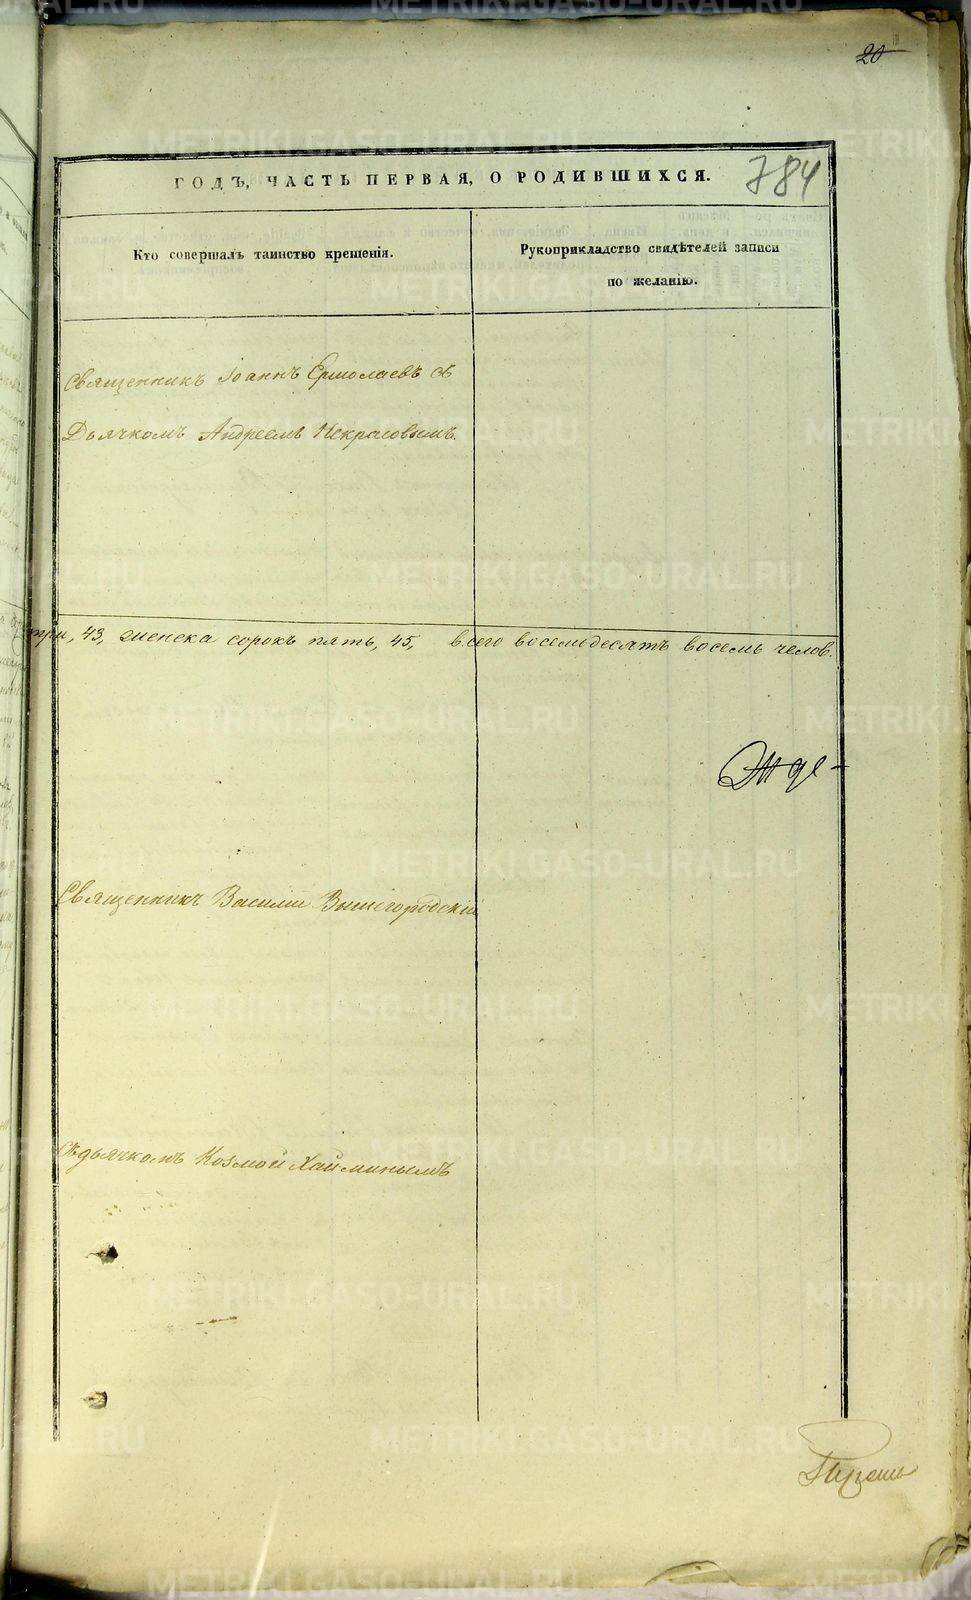 20
784
ГОДЪ, ЧАСТЬ ПЕРВАЯ, О РОДИВШИХСЯ.
Кто совершалъ таинство крещенія.
Рукоприкладство свидѣтелей записи
по желанію.
Священникъ Іоаннъ Ермолаевъ съ
Дьячкомъ Андреемъ Некрасовымъ.
три, 43, женска сорокъ пять, 45, всего восемьдесятъ восемь челов.
Священникъ Василій Вышегородскій
Съ дьячкомъ Козмой Хайминымъ
METRIKI.GASO-URAL.RU